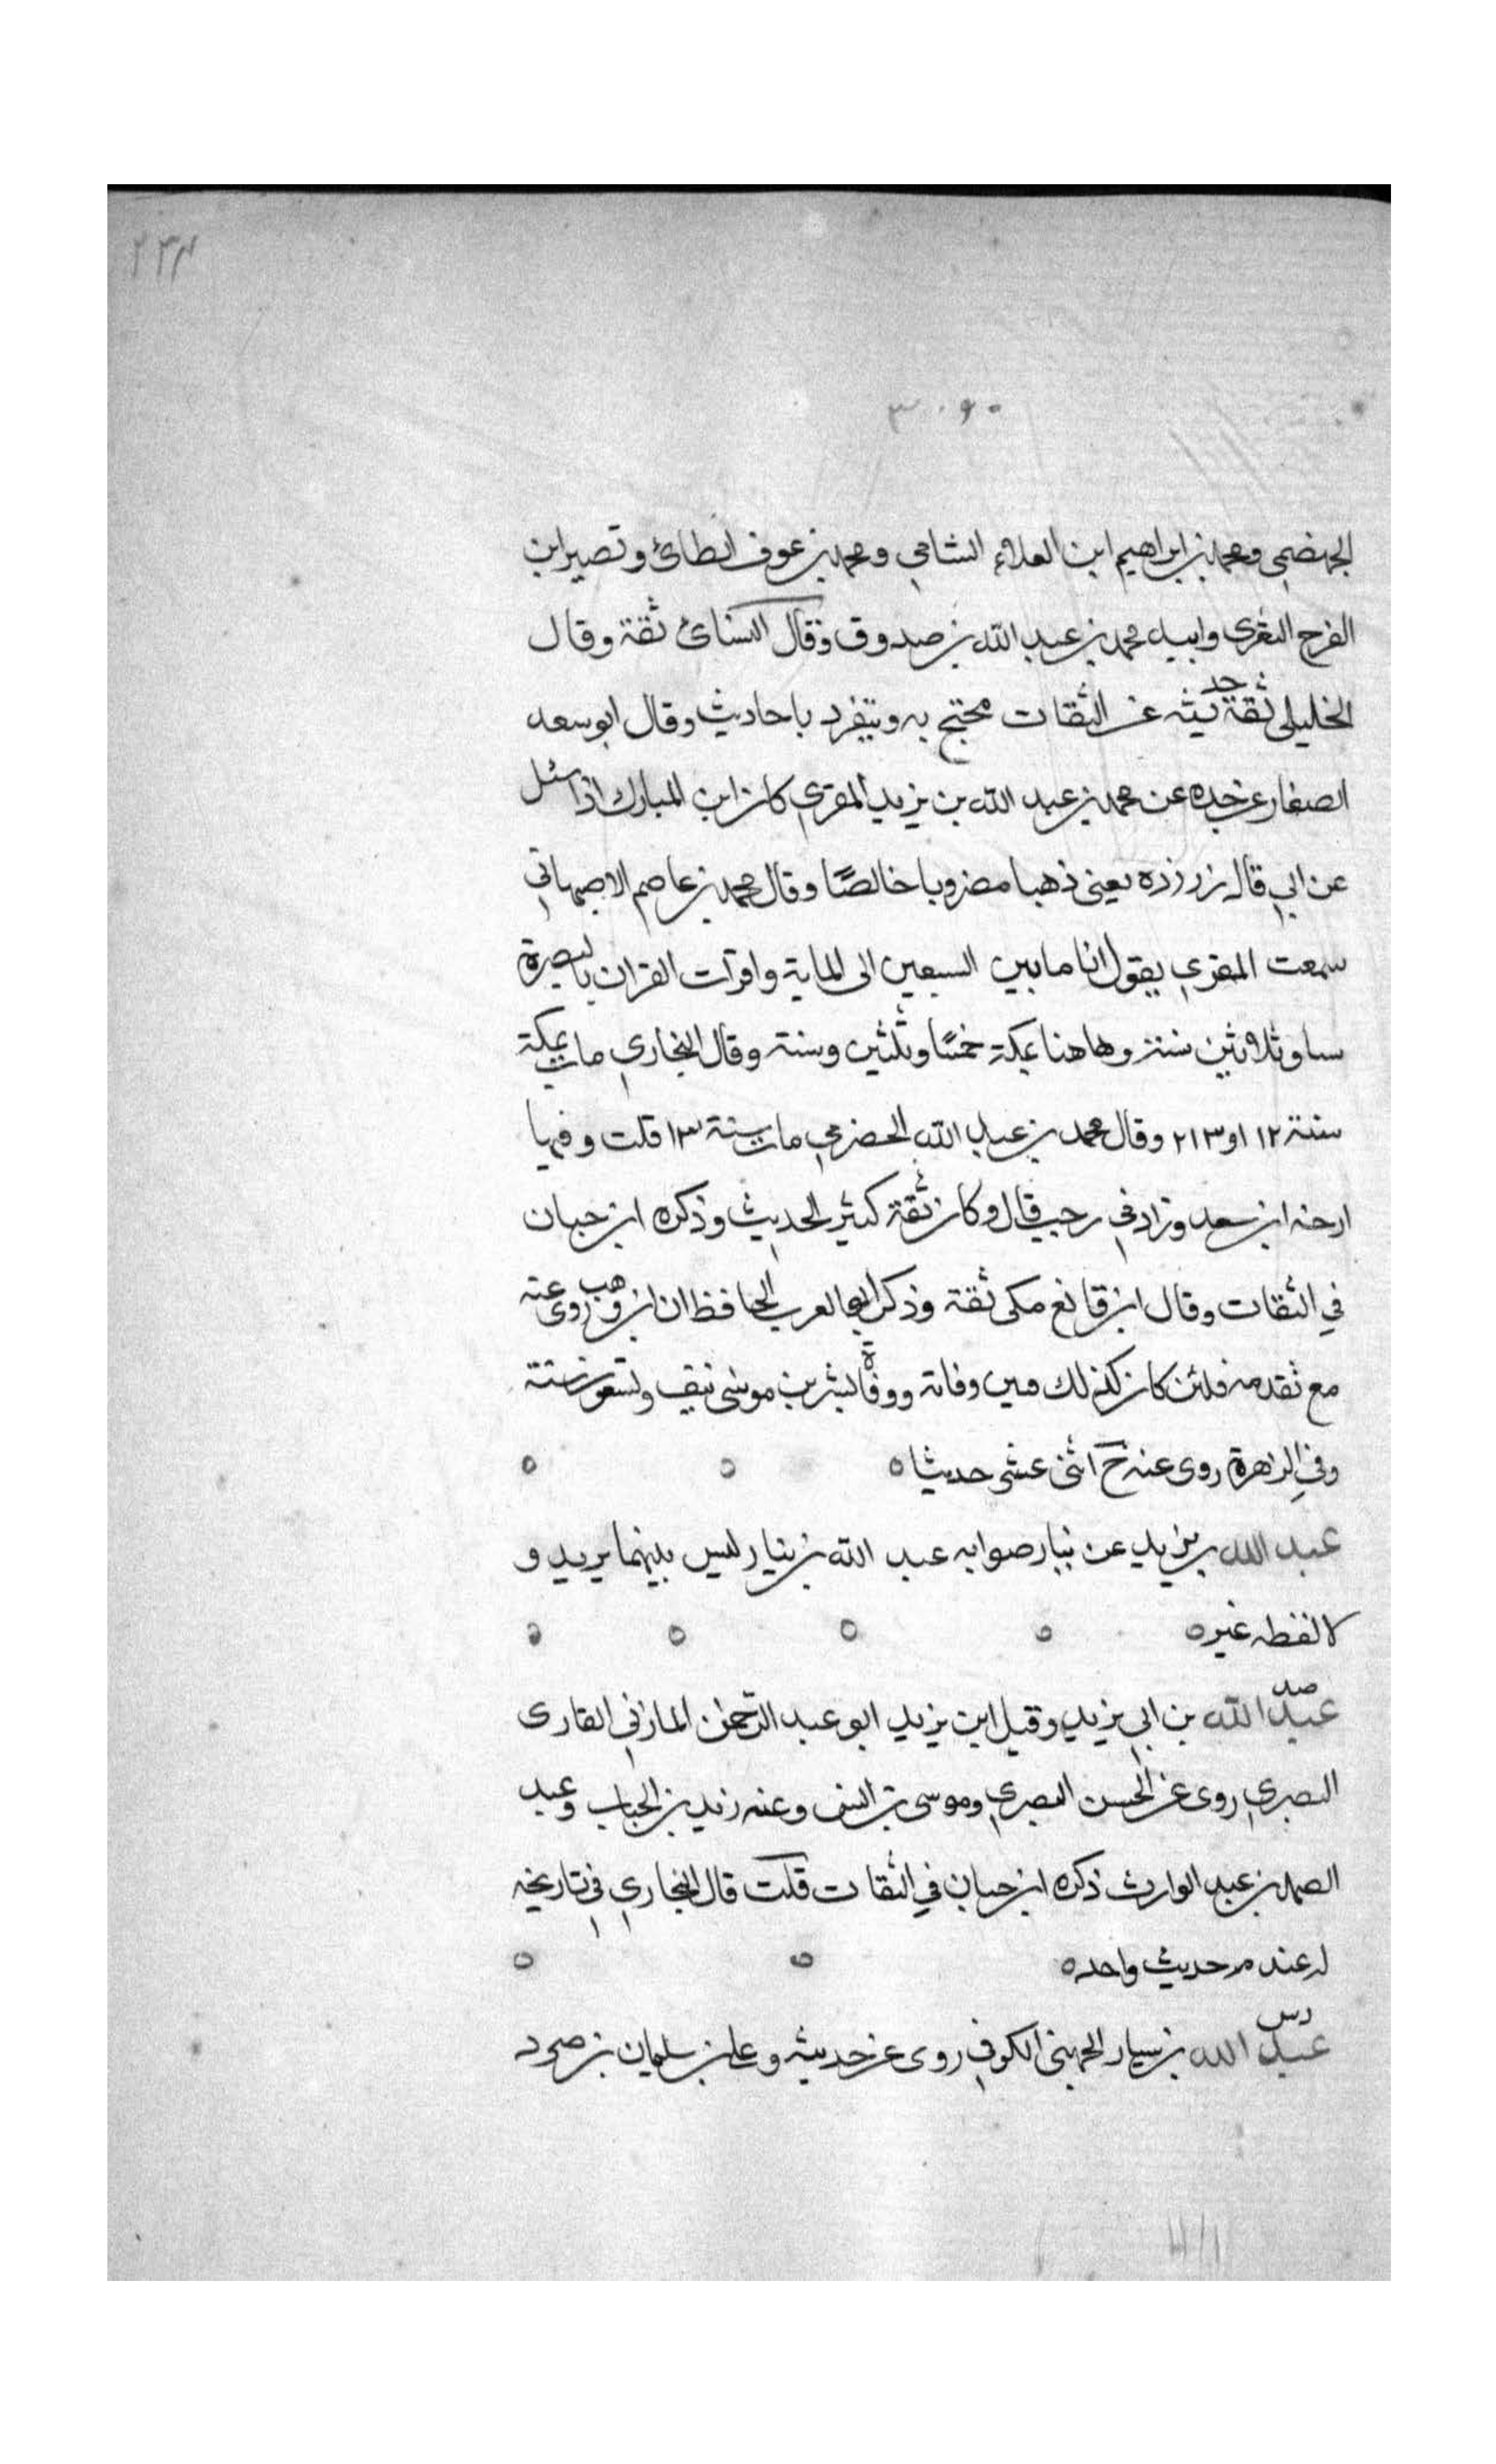 ٢٣٢
الجهضمي ومحمد بن ابراهيم ابن العلاء الشامي ومحمد بن عوف الطائ وتصير ابن
الفرح الثغرى وابيه محمد بن عبد الله بن صدوق وقال النسائ ثقة وقال
الخليلي ثقة حديثه عن الثقات محتج به ويتفرد باحاديث وقال ابو سعد
الصفار عن جده عن محمد بن عبد الله بن يزيد المقري كان ابن المبارك اذا سئل
عن ابي قال زرزده يعني ذهبا مضروبا خالصًا وقال محمد بن عاصم الاصبهاني
سمعت المقري يقول انا ما بين السبعين الى الماية واقرات القران بالبصرة
ستا وثلاثين سنة وهاهنا بمكة خمسًا وثلثين وسنة وقال البخاري مات بمكة
سنة ١٢ او ٢١٣ وقال محمد بن عبد الله الحضرمي مات سنة ١٣ قلت وفيها
ارخه ابن سعد وزاد في رجب قال وكان ثقة كثير الحديث وذكره ابن حبان
في الثقات وقال ابن قانع مكى ثقة وذكر ابو العرب الحافظ ان ابن وهب روى عنه
مع تقدمه فلئن كان كذلك فبين وفاته ووفاة بشر بن موسى نيف وتسعون سنة
وفي الزهرة روى عنه خ اثنى عشى حديثا ه
عبد الله بن يزيد عن نيار صوابه عبد الله بن نيار ليس بينهما يريد و
لا لفظه غيره
صد
عبد الله بن ابي يزيد وقيل ابن يزيد ابو عبد الرحمن المازني القارى
البصري روى عن الحسن البصري وموسى بن انس وعنه زيد بن الحباب وعبد
الصمد بن عبد الوارث ذكره ابن حبان في الثقات قلت قال البخاري في تاريخه
له عندهم حديث واحد ه
دس
عبد الله بن سيار الجهيني الكوفي روى عن حديثه وعلى بن سليمان بن صرد